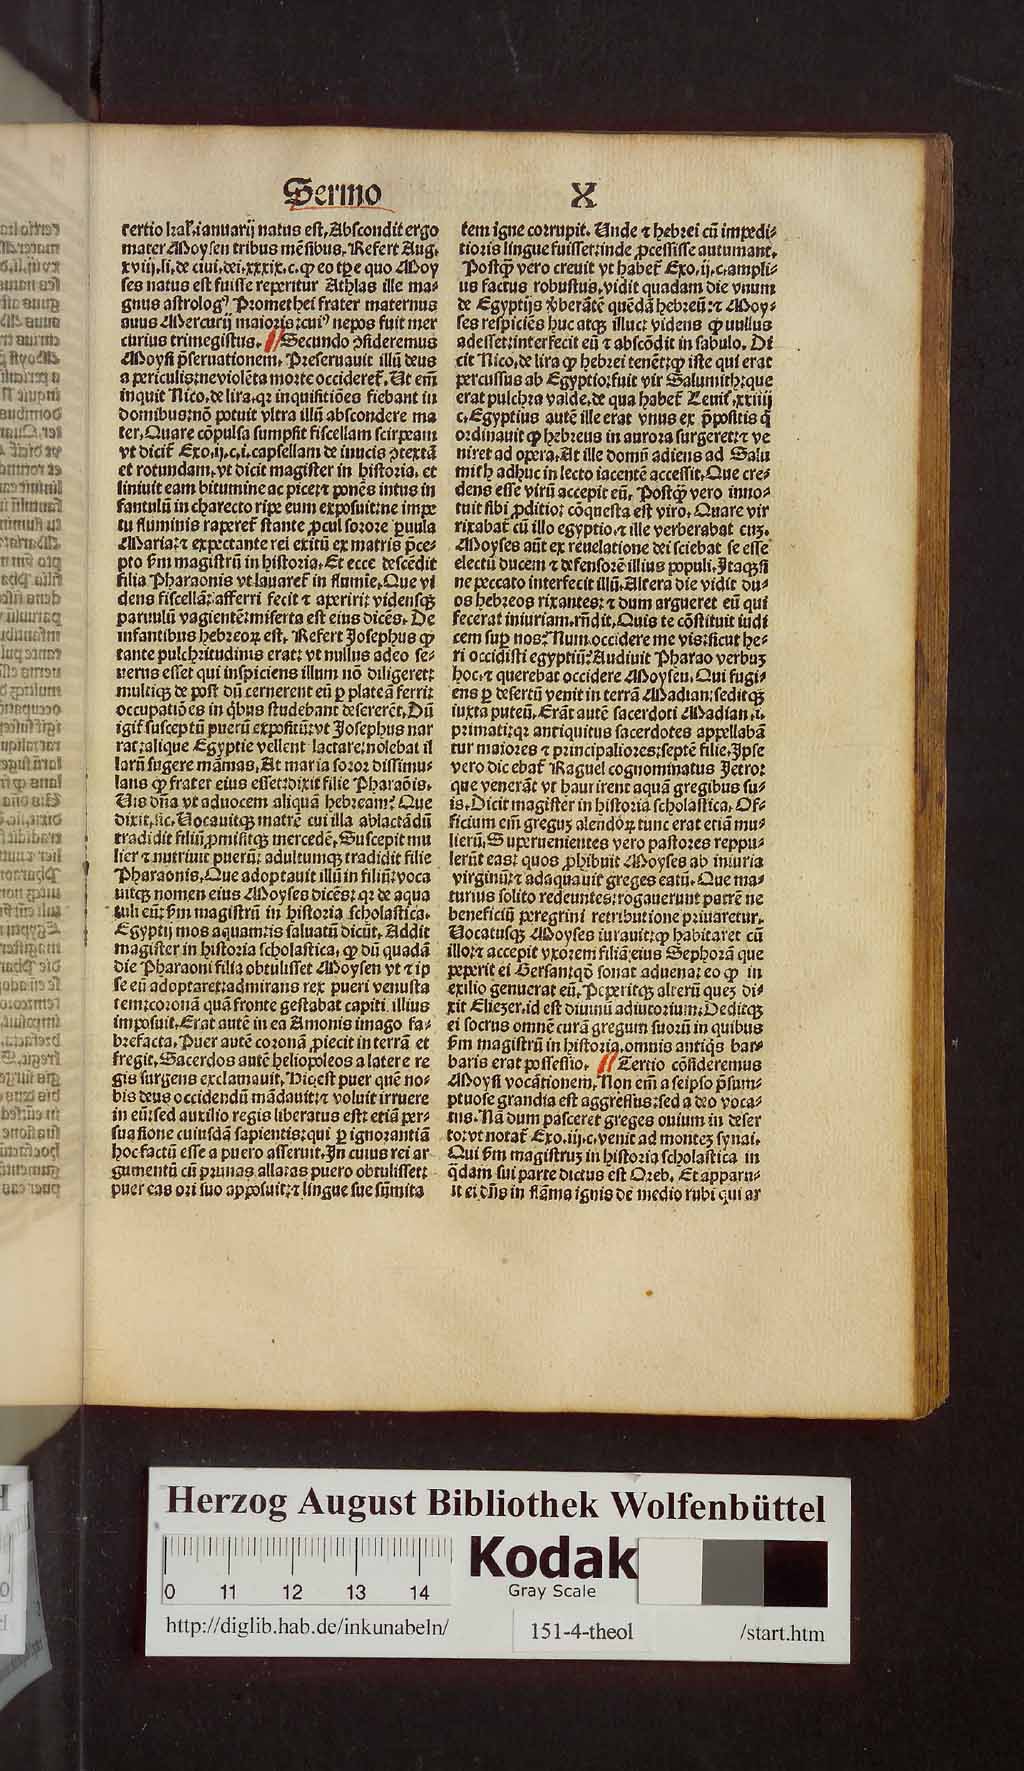 Sermo X
tertio kal'. ianuarij natus est. Abscondit ergo
mater Moysen tribus mēsibus. Refert Aug.
xviij. li. de ciui. dei. xxxix. c. ꝙ eo tꝑe quo Moy
ses natus est fuisse reperitur Athlas ille ma-
gnus astrologꝰ Promethei frater maternus
auus Mercurij maioris: cuiꝰ nepos fuit mer
curius trimegistus. Secundo ↄsideremus
Moysi p̄seruationem. Preseruauit illū deus
a periculis: ne violēta morte occideret᷑. Ut em̄
inquit Nico. de lira. qr inquisitiōes fiebant in
domibus: nō potuit vltra illū abscondere ma
ter. Quare cōpulsa sumpsit fiscellam scirpeam
vt dicit᷑ Exo. ij. c. i. capsellam de iuncis ↄtextā
et rotundam. vt dicit magister in historia. et
liniuit eam bitumine ac pice: ⁊ ponēs intus in
fantulū in charecto ripe eum exposuit: ne impe
tu fluminis raperet᷑ stante ꝓcul sorore ꝑuula
Maria: ⁊ expectante rei exitū ex matris p̄ce-
pto ẜm magistrū in historia. Et ecce descēdit
filia Pharaonis vt lauaret᷑ in flumīe. Que vi
dens fiscellā: afferri fecit ⁊ aperiri: vidensqꝫ
paruulū vagientē: miserta est eius dicēs. De
infantibus hebreoꝝ est. Refert Josephus ꝙ
tante pulchritudinis erat: vt nullus adeo se-
uerus esset qui inspiciens illum nō diligeret:
multiqꝫ de post dū cernerent eū ꝑ plateā ferri:
occupatiōes in q̄bus studebant desererēt. Dū
igit᷑ susceptū puerū expositū: vt Josephus nar
rat: alique Egyptie vellent lactare: nolebat il
larū sugere māmas. At maria soror dissimu-
lans ꝙ frater eius esset: dixit filie Pharaōis.
Uis dn̄a vt aduocem aliquā hebream? Que
dixit. sic. Uocauitqꝫ matrē cui illa ablactādū
tradidit filiū: ꝓmisitqꝫ mercedē. Suscepit mu
lier ⁊ nutriuit puerū: adultumqꝫ tradidit filie
Pharaonis. Que adoptauit illū in filiū: voca
uitqꝫ nomen eius Moyses dicēs: qr de aqua
tuli eū: ẜm magistrū in historia scholastica.
Egyptij mos aquam: is saluatū dicūt. Addit
magister in historia scholastica. ꝙ dū quadā
die Pharaoni filia obtulisset Moysen vt ⁊ ip
se eū adoptaret: admirans rex pueri venusta
tem: coronā quā fronte gestabat capiti illius
imposuit. Erat autē in ea Amonis imago fa-
brefacta. Puer autē coronā ꝓiecit in terrā et
fregit. Sacerdos autē heliopoleos a latere re
gis surgens exclamauit. Hic est puer quē no-
bis deus occidendū mādauit: ⁊ voluit irruere
in eū: sed auxilio regis liberatus est: etiā per-
suasione cuiusdā sapientis: qui ꝑ ignorantiā
hoc factū esse a puero asseruit. In cuius rei ar
gumentū cū prunas allatas puero obtulisset:
puer eas ori suo apposuit: ⁊ lingue sue sūmita
tem igne corrupit. Unde ⁊ hebrei cū impedi-
tioris lingue fuisset: inde ꝓcessisse autumant.
Postꝙ vero creuit vt habet᷑ Exo. ij. c. ampli-
us factus robustus. vidit quadam die vnum
de Egyptijs v̄berātē quēdā hebreū: ⁊ Moy-
ses respiciēs huc atqꝫ illuc: videns ꝙ nullus
adesset: interfecit eū ⁊ abscōdit in sabulo. Di
cit Nico. de lira ꝙ hebrei tenēt: ꝙ iste qui erat
percussus ab Egyptio: fuit vir Salumith: que
erat pulchra valde. de qua habet᷑ Leuit᷑. xxiiij
c. Egyptius autē ille erat vnus ex p̄positis q̄
ordinauit ꝙ hebreus in aurora surgeret: ⁊ ve
niret ad opera. At ille domū adiens ad Salu
mith adhuc in lecto iacentē accessit. Que cre-
dens esse virū accepit eū. Postꝙ vero inno-
tuit sibi ꝓditio: cōquesta est viro. Quare vir
rixabat᷑ cū illo egyptio. ⁊ ille verberabat euꝫ.
Moyses aūt ex reuelatione dei sciebat se esse
electū ducem ⁊ defensorē illius populi. Itaqꝫ si
ne peccato interfecit illū. Altera die vidit du-
os hebreos rixantes: ⁊ dum argueret eū qui
fecerat iniuriam. rn̄dit. Quis te cōstituit iudi
cem suꝑ nos? Num occidere me vis: sicut he-
ri occidisti egyptiū? Audiuit Pharao verbuꝫ
hoc: ⁊ querebat occidere Moysen. Qui fugi-
ens ꝑ desertū venit in terrā Madian: seditqꝫ
iuxta puteū. Erāt autē sacerdoti Madian .i.
primati: qr antiquitus sacerdotes appellabā
tur maiores ⁊ principaliores: septē filie. Ipse
vero dicebat᷑ Raguel cognominatus Jetro:
que venerāt vt haurirent aquā gregibus su-
is. Dicit magister in historia scholastica. Of-
ficium em̄ greguꝫ alendoꝝ tunc erat etiā mu-
lierū. Superuenientes vero pastores reppu-
lerūt eas: quos ꝓhibuit Moyses ab iniuria
virginū: ⁊ adaquauit greges eatū. Que ma-
turius solito redeuntes: rogauerunt patrē ne
beneficiū peregrini retributione priuaretur.
Uocatusqꝫ Moyses iurauit: ꝙ habitaret cū
illo: ⁊ accepit vxorem filiā eius Sephorā que
peperit ei Gersan: qd̄ sonat aduena: eo ꝙ in
exilio genuerat eū. Peperitqꝫ alterū queꝫ di-
xit Eliezer. id est diuinū adiutorium: Deditqꝫ
ei socrus omnē curā gregum suorū in quibus
ẜm magistrū in historia. omnis antiq̄s bar-
baris erat possessio. Tertio cōsideremus
Moysi vocationem. Non em̄ a seipso p̄sum-
ptuose grandia est aggressus: sed a deo voca-
tus. Nā dum pasceret greges ouium in deser
to: vt notat᷑ Exo. iij. c. venit ad monteꝫ synai.
Qui ẜm magistruꝫ in historia scholastica in
q̄dam sui parte dictus est Oreb. Et apparu-
it ei dn̄s in flāma ignis de medio rubi qui ar
Herzog August Bibliothek Wolfenbüttel
0 11 12 13 14
Kodak
Gray Scale
http://diglib.hab.de/inkunabeln/ 151-4-theol /start.htm